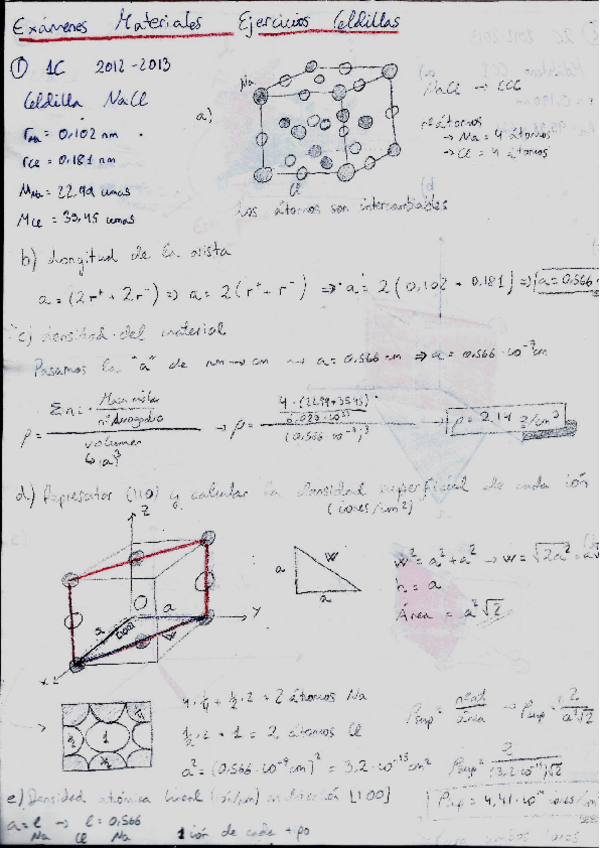 Exámenes Materiales Ejercicios Celdillas
① 1C 2012-2013
Celdilla NaCl
rNa = 0.102 nm
rCl = 0.181 nm
MNa = 22.99 umas
MCl = 35.45 umas
a)
Na
Cl
NaCl → CCC
nº átomos
→ Na = 4 átomos
→ Cl = 4 átomos
Los átomos son intercambiables
b) Longitud de la arista
a = (2r⁺ + 2r⁻) ⇒ a = 2(r⁺ + r⁻) ⇒ a = 2(0.102 + 0.181) ⇒ a = 0.566
c) densidad del material
Pasamos la "a" de nm → cm → a = 0.566 nm ⇒ a = 0.566·10⁻⁷ cm
ρ = Σni · Masa molar / nº Avogadro / volumen ↳ (a)³ → ρ = 4·(22.99+35.45) / 6.023·10²³ / (0.566·10⁻⁷)³ → ρ = 2.14 g/cm³
d) Representar (110) y calcular la densidad superficial de cada ión
(iones/cm²)
Z
O a Y
a (110) w
X
a w a
w² = a² + a² → w = √2a² = a√2
h = a
Área = a²√2
1
4·¼ + ½·2 = 2 átomos Na
½·2 + 1 = 2 átomos Cl
a² = (0.566·10⁻⁷ cm)² = 3.2·10⁻¹⁵ cm²
ρsup = nºat / área → ρsup = 2 / a²√2
ρsup = 2 / (3.2·10⁻¹⁵)√2
ρsup = 4.41·10¹⁴ iones/cm²
e) Densidad atómica lineal (ión/cm) en dirección [100]
a = l → l = 0.566
Na Cl Na
1 ión de cada tipo